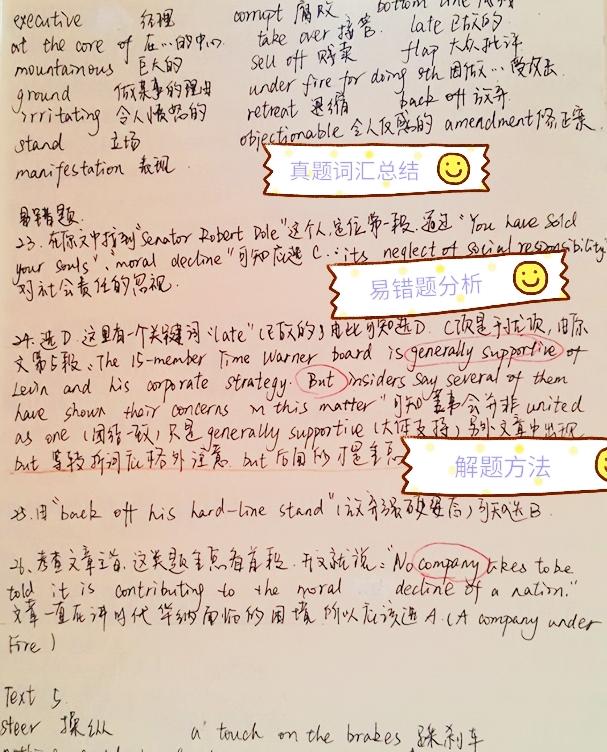 executive 经理 corrupt 腐败 bottom line
at the core of 在…的中心 take over 接管 late 已故的
mountainous 巨大的 sell off 贱卖 flap 大众批评
ground 做某事的理由 under fire for doing sth 因做…受攻击
irritating 令人愤怒的 retreat 退缩 back off 放弃
stand 立场 objectionable 令人反感的 amendment 修正案
manifestation 表现
真题词汇总结
易错题
23. 在原文中找到"Senator Robert Dole"这个人,定位第一段,通过"You have sold
your souls"、"moral decline"可知应选 C. its neglect of social responsibility
对社会责任的忽视.
易错题分析
24. 选D. 这里有一个关键词"late"(已故的)由此可知选D. C项是干扰项,由原
文第5段、The 15-member Time Warner board is generally supportive of
Levin and his corporate strategy. But insiders say several of them
have shown their concerns in this matter"可知董事会并非united
as one(团结一致)只是generally supportive(大体支持)另外文章中出现
but 等转折词应格外注意. but后面的才是重点
解题方法
25. 由"back off his hard-line stand"(放弃强硬姿态)可知选B.
26. 考查文章主旨,这类题重点看首段,开文就说:"No company likes to be
told it is contributing to the moral decline of a nation."
文章一直在讲时代华纳面临的困境,所以应该选 A.(A company under
Fire)
Text 5
steer 操纵 a touch on the brakes 踩刹车